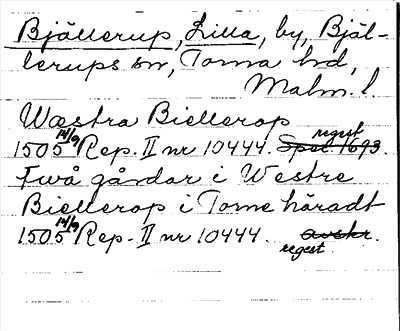 Bjällerup, Lilla, by, Bjäl-
lerups sn, Torna hd,
Malm. l.
Wæstra Biellerop
1505 14/9 Rep. II nr 10444. Spec 1693. regest
Twå gårdar i Westre
Biellerop i Torne häradt
1505 14/9 Rep. II nr 10444. avskr. regest.